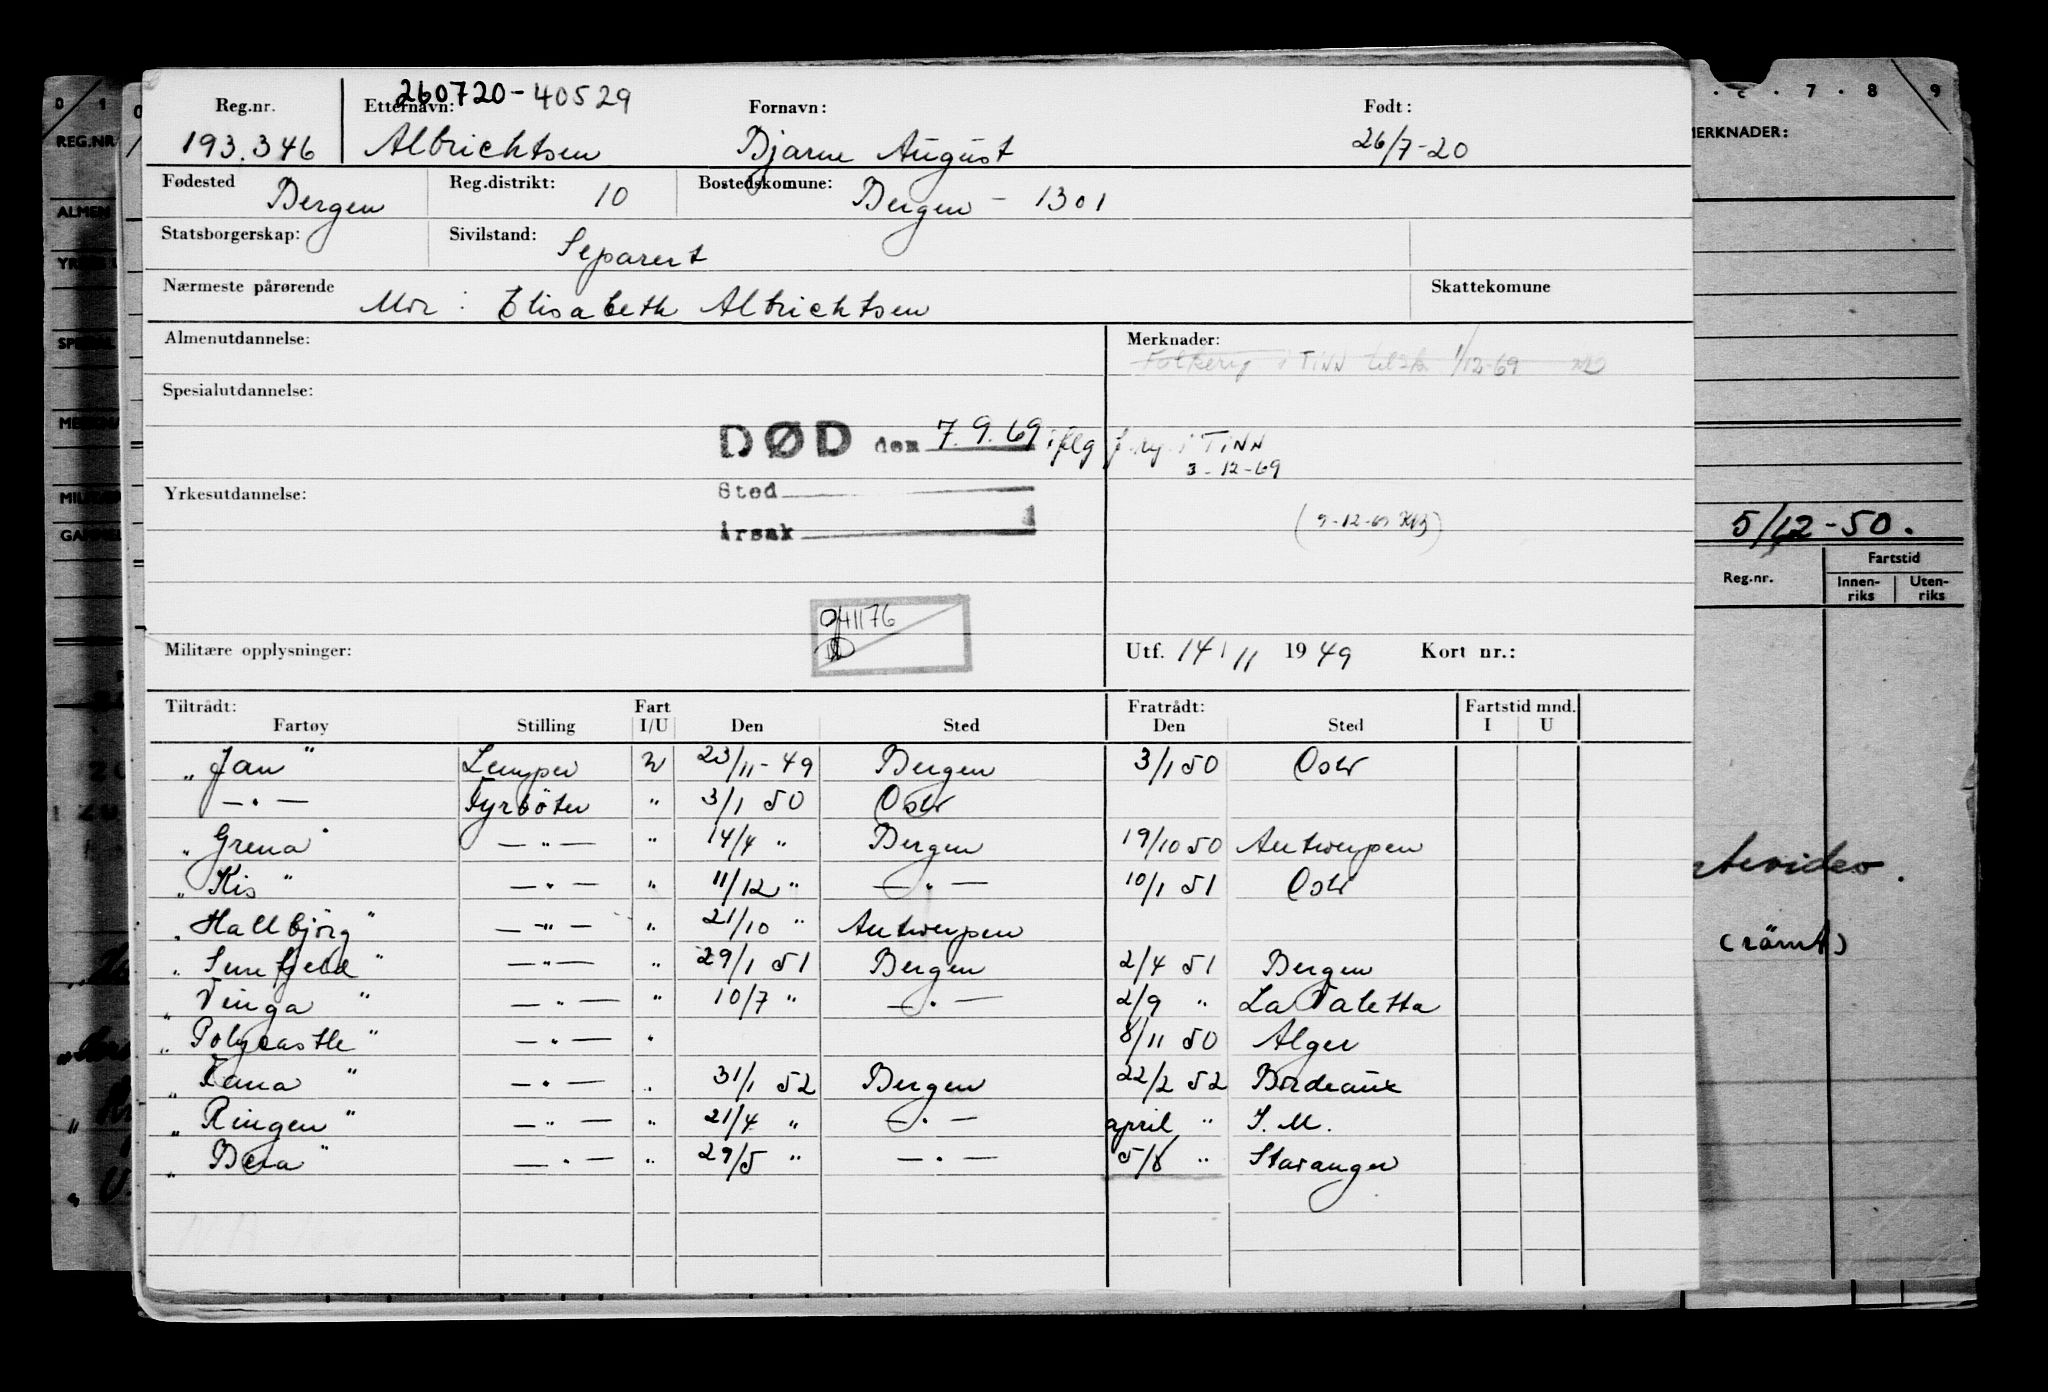 260720-40529
Reg.nr. Etternavn: Fornavn: Født:
193.346 Albrichtsen Bjarne August 26/7-20
Fødested Bergen Reg.distrikt: 10 Bostedskomune: Bergen - 1301
Statsborgerskap: Sivilstand: Separert
Nærmeste pårørende Mor: Elisabeth Albrichtsen Skattekomune
Almenutdannelse: Merknader:
i TINN 1/12-69
Spesialutdannelse:
DØD den 7.9.69 ifølg f.reg. i TINN
3-12-69
Yrkesutdannelse: Sted
Årsak
941176
Militære opplysninger: Utf. 14/11 1949 Kort nr.:
Tiltrådt: Fart Fratrådt: Fartstid mnd.
Fartøy Stilling I/U Den Sted Den Sted I U
"Jan" Lemper U 23/11-49 Bergen 3/1 50 Oslo
—"— Fyrbøter " 3/1 50 Oslo
"Grena" —"— " 14/4 " Bergen 19/10 50 Antwerpen
"Kis" —"— " 11/12 " —"— 10/1 51 Oslo
"Hallbjørg" —"— " 21/10 " Antwerpen
"Sunefjeld" —"— " 29/1 51 Bergen 2/4 51 Bergen
"Vinga" —"— " 10/7 " —"— 2/9 " La Valetta
"Polycastle" —"— " 8/11 50 Alger
"Tana" —"— " 31/1 52 Bergen 22/2 52 Bordeaux
"Ringen" —"— " 21/4 " —"— april " I.M.
"Bera" —"— " 29/5 " —"— 5/8 " Stavanger
0 1
REG.NR
ALMEN
7 8 9
MERKNADER:
5/12-50.
Fartstid
Reg.nr. Innen-riks Uten-riks
(rømt)